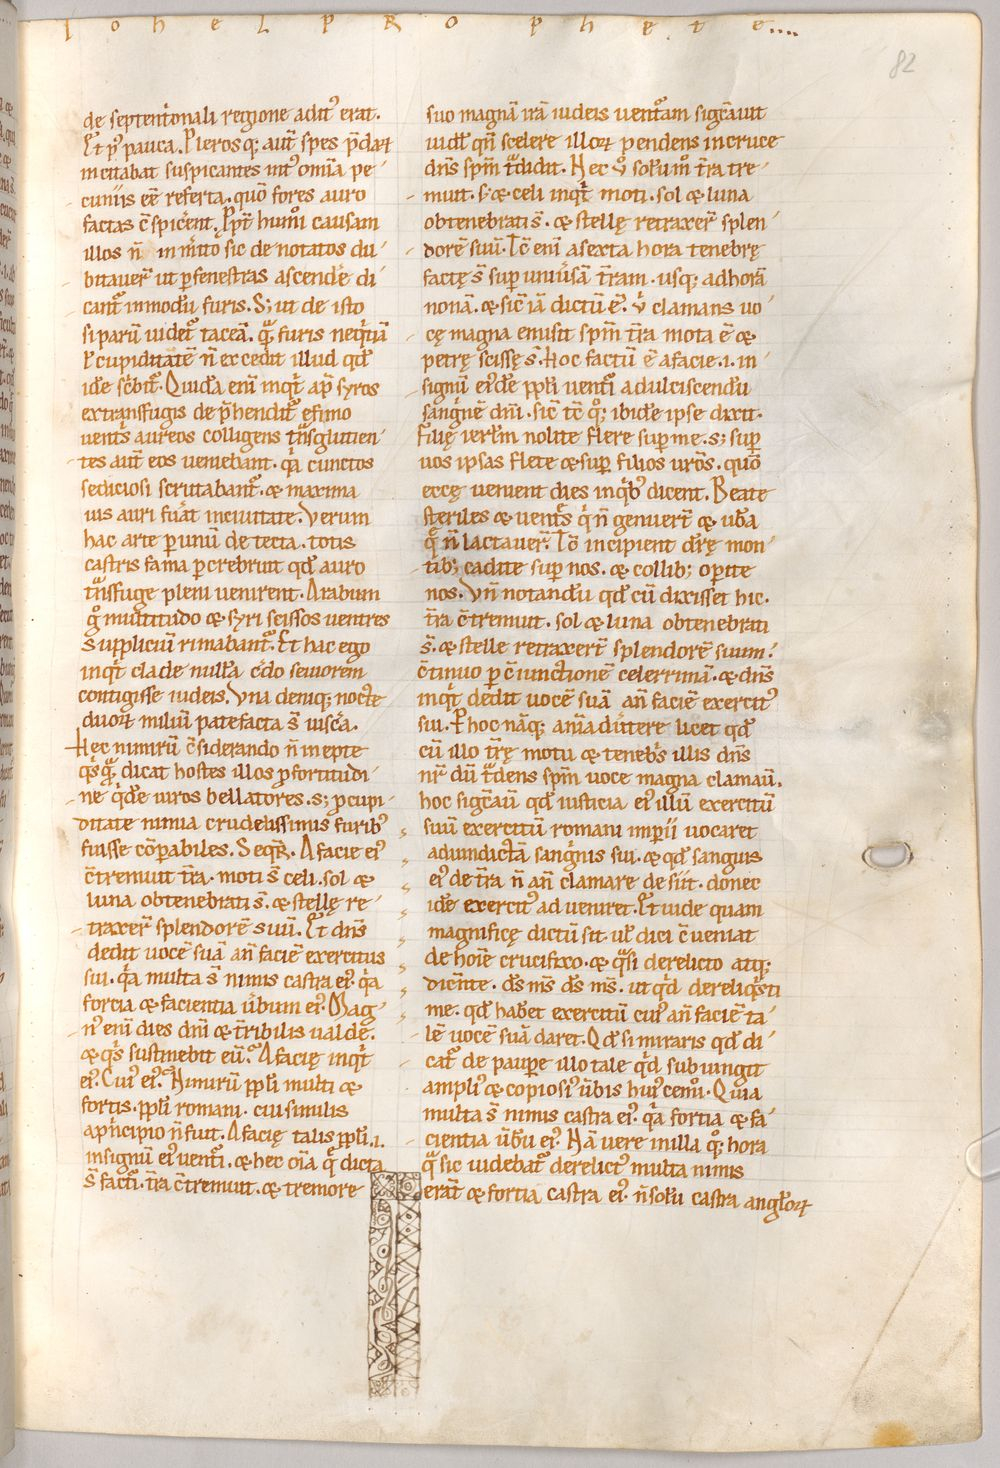 I o h e L p R o p h e t e....
82
de septent͛onali regione adit᾽ erat.
Et p᾽ pauca. Pleros q; aut̄ spes p̄dar̄
incitabat suspicantes int᾽ om̄ia pe-
cuniis eē referta. quō fores auro
factas c̄spic͛ent. Ppt̄ hum͛oi causam
illos n̄ inm͛ito sic de notatos du-
bitauer̄ ut p fenestras ascende͛ di-
cant᾽ inmodū furis. S; ut de isto
si parū uidet᾽ taceā. q͛a furis neq͛tiā
ł cupiditatē n̄ excedit illud qd̄
idē sc͛bit᾽. Quidā enī inq͛t ap̄ syros
ex transfugis dep̄hendit᾽ efimo
uent͛s aureos colligens t͛nsglutien-
tes aut̄ eos ueniebant. q͛a cunctos
sediciosi scrutabant᾽. & maxima
uis auri fuāt inciuitate. Verum
hac arte p unū detecta. totis
castris fama pcrebruit qd̄ auro
t͛nsfuge pleni uenirent. Arabum
g͛ multitudo & syri scissos uentres
suppliciū rimabant᾽. Et hac ego
inq͛t clade nullā c͛do seuiorem
contigisse iudeis. Vna deniq; nocte
duor̄ miliū patefacta s̄ uisc͛a.
Hec nimirū c̄siderando n̄ inepte
q͛sq͛ dicat hostes illos p fortitudi-
ne q͛dē uiros bellatores. s; p cupi-
ditate nimia crudelissimis furib᾽
fuisse cōpabiles. Seq͛t᾽. A facie ei᾽
c̄tremuit t̄ra. moti s̄ celi. sol &
luna obtenebrati s̄. & stellę re-
traxer̄ splendorē suū. Et dn̄s
dedit uocē suā an̄ faciē exercitus
sui. q͛a multa s̄ nimis castra ei᾽. q͛a
fortia & facientia ūbum ei᾽. Mag-
n᾽ enī dies dn̄i & t̄ribilis ualdē.
& q͛s sustinebit eū. A facię inq͛t
ei᾽. Cui᾽ ei᾽. Nimirū ppl̄i multi &
fortis. ppl̄i romani. cui similis
ap͛ncipio n̄ fuit. A facię talis ppl̄i .i.
insignū ei᾽ uent͛i. & hec oīa q̄ dicta
s̄ facti. t̄ra c̄tremuit. & tremore
suo magnā irā iudeis uent᾽am sig͛cauit
uidł qn̄ scelere illor̄ pendens in cruce
dn̄s sp̄m t͛didit. Hec ū solum᾽ t̄ra tre-
muit. s; & celi inq͛t moti. sol & luna
obtenebrati s̄. & stellę retraxer̄ splen-
dorē suū. Tc̄ enī asexta hora tenebrę
factę s̄ sup uniūsā t̄ram. usq; adhorā
nonā. & sic͛ iā dictū ē. ū clamans uo-
cę magna emisit sp̄m t̄ra mota ē &
petrę scissę s̄. Hoc factū ē a facie .i. in-
signū ei᾽dē ppl̄i uent͛i ad ulciscendū
sang͛nē dn̄i. sic͛ tc̄ q; ibidē ipse dixit.
Filię ierl̄m nolite flere sup me. s; sup
uos ipsas flete & sup filios ur̄os. quō
eccę uenient dies inq͛b᾽ dicent. Beate
steriles & uent͛s q̄ n̄ genuer̄t & ub͛a
q̄ n̄ lactauer̄. Tc̄ incipient dr͛ę mon-
tib; cadite sup nos. & collib; opite
nos. Vn̄ notandū qd̄ cū dixisset hic.
t̄ra c̄tremuit. sol & luna obtenebrati
s̄. & stelle retraxer̄t splendorē suum:
c̄tinuo p c̄iunctionē celerrimā. & dn̄s
inq͛t dedit uocē suā an̄ faciē exercit᾽
sui. P hoc nāq; anīad͛utere licet qd̄
cū illo t̄rę motu & teneb͛s illis dn̄s
nr̄ dū t͛dens sp̄m uoce magna clamau͛.
hoc sig͛cau͛ qd̄ iusticia ei᾽ illū exercitū
suū exercitū romani impii uocaret
adiundictā sang͛nis sui. & qd̄ sanguis
ei᾽ de t̄ra n̄ an̄ clamare desiit. donec
idē exercit᾽ adueniret. Et uide quam
magnificę dictū sit. uł dici c̄ueniat
de hoīe crucifixo. & q͛si derelicto atq;
dic͛nte. dş ms̄ dş ms̄. ut q͛d dereliq͛sti
me. qd̄ habet exercitū cui᾽ an̄ faciē ta-
lē uocē suā daret. Qd̄ si miraris qd̄ di-
cat᾽ de paupe illo tale q͛d subiungit
ampli᾽ & copiosi᾽ ūbis hui᾽cem͛oi. Quia
multa s̄ nimis castra ei᾽. q͛a fortia & fa-
cientia ūbū ei᾽. Nā uere in illa q; hora
q̄ sic uidebat᾽ derelict᾽ multa nimis
erāt & fortia castra ei᾽. n̄ solū castra angłor̄